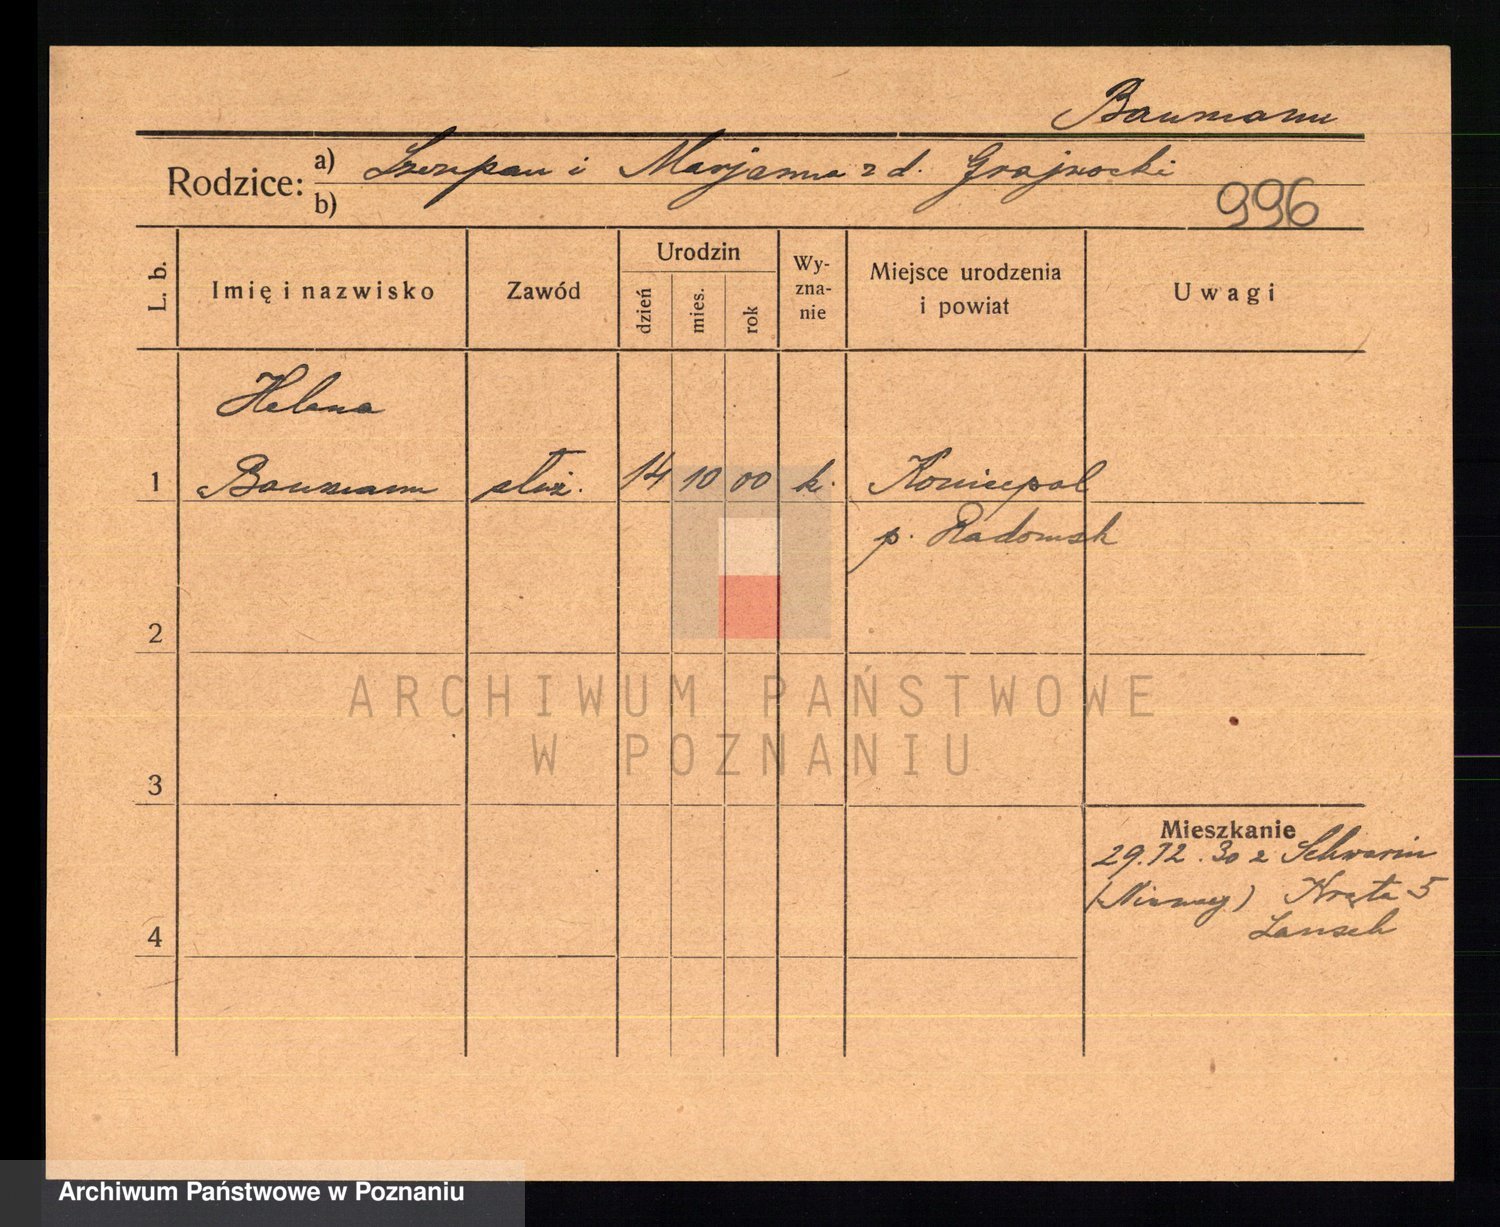 Baumann
Rodzice: a) Szczepan i Marjanna z d. Grajnocki
b)
996
L. b.
Imię i nazwisko
Zawód
Urodzin
dzień
mies.
rok
Wy-
zna-
nie
Miejsce urodzenia
i powiat
Uwagi
Helena
1 Baumann służ. 14 10 00 k. Koniecpol
p. Radomsk
2
3
4
Mieszkanie
29.12.30 z Schwerin
(Niemcy) Kręta 5
ARCHIWUM PAŃSTWOWE
W POZNANIU
Archiwum Państwowe w Poznaniu